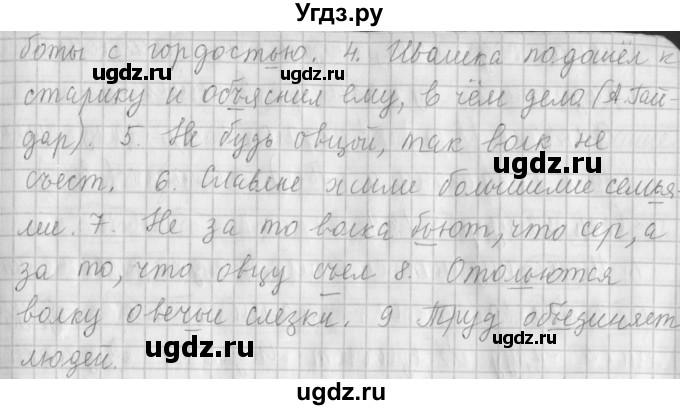 Угдз.ру
боты с гордостью. 4. Ивашка подошёл к
старику и объяснил ему, в чём дело (А. Гай-
дар). 5. Не будь овцой, так волк не
съест. 6. Славяне жили большими семья-
ми. 7. Не за то волка бьют, что сер, а
за то, что овцу съел 8. Отольются
волку овечьи слезки. 9 Труд объединяет
людей.
ugdz.ru
ugdz.ru
ugdz.ru
ugdz.ru
ugdz.ru
ugdz.ru
ugdz.ru
ugdz.ru